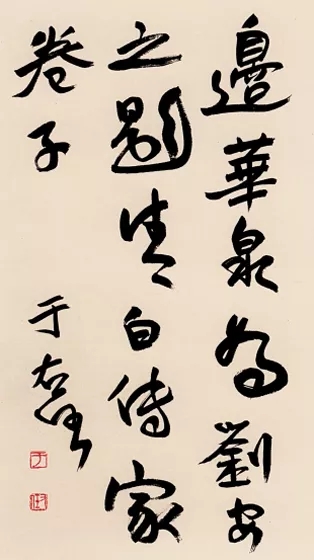 邊華泉為劉安
之題清白傳家
卷子
于右任